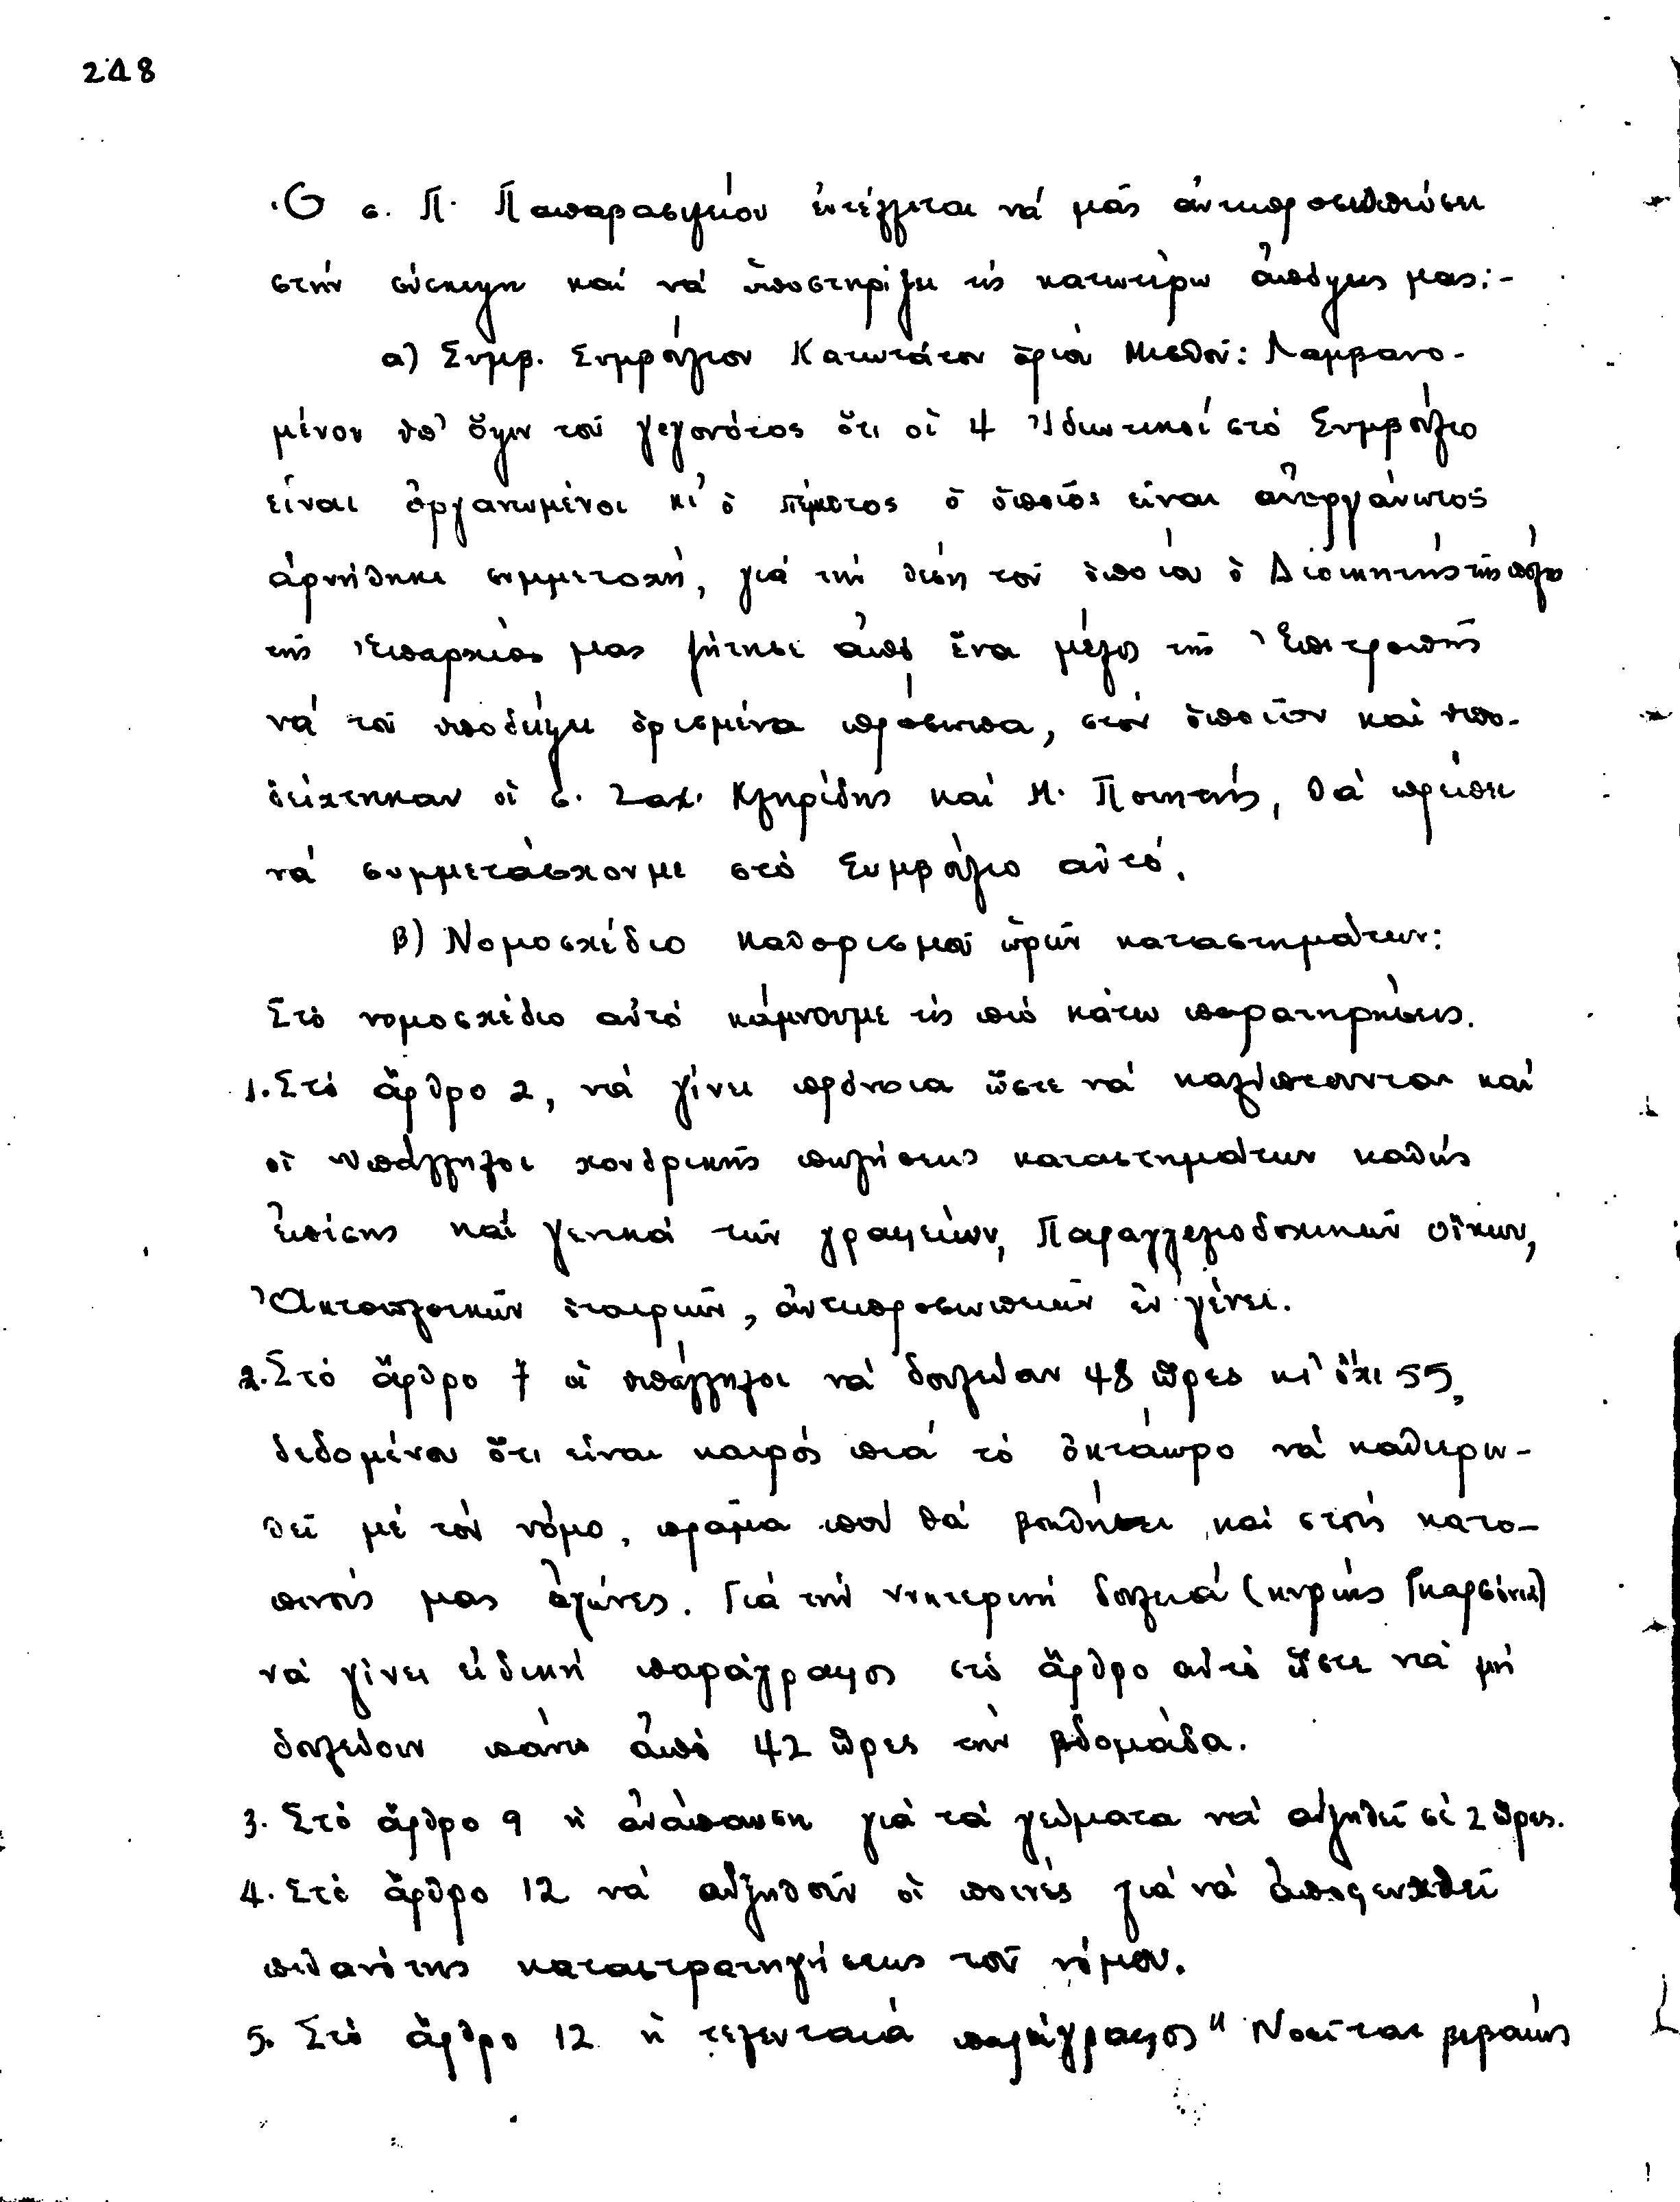 248
Ὁ σ. Π. Παπαβασιλείου ἐντέλλεται νά μᾶς ἀντιπροσωπεύσει
στήν σύσκεψη καί νά ὑποστηρίξει τίς κατωτέρω ἀπόψεις μας:-
α) Συμβ. Συμβούλιον Κατωτάτου ὁρίου Μισθοῦ: Λαμβανο-
μένου ὑπ' ὄψιν τοῦ γεγονότος ὅτι οἱ 4 Ἰδιωτικοί στό Συμβούλιο
εἶναι ὀργανωμένοι κι' ὁ πέμπτος ὁ ὁποῖος εἶναι ἀνοργάνωτος
ἀρνήθηκε συμμετοχή, γιά τήν θέση τοῦ ὁποίου ὁ Διοικητής τῆς πόλης
τῆς Ἐπαρχίας μας ζήτησε ἀπό ἕνα μέλος τῆς Ἐπιτροπῆς
νά τοῦ ὑποδείξει ὁρισμένα πρόσωπα, στόν ὁποῖον καί ὑπο-
δείχτηκαν οἱ σ. Ζαχ. Κληρίδης καί Μ. Ποιητής, θά πρέπει
νά συμμετάσχουμε στό Συμβούλιο αὐτό.
β) Νομοσχέδιο καθορισμοῦ ὡρῶν καταστημάτων:
Στό νομοσχέδιο αὐτό κάμνουμε τίς πιό κάτω παρατηρήσεις.
1. Στό ἄρθρο 2, νά γίνει πρόνοια ὥστε νά καλύπτονται καί
οἱ ὑπάλληλοι χονδρικῆς πωλήσεως καταστημάτων καθώς
ἐπίσης καί γενικά τῶν γραφείων, Παραγγελιοδοχικῶν οἴκων,
Ἀκτοπλοικῶν ἑταιριῶν, ἀντιπροσωπειῶν ἐν γένει.
2. Στό ἄρθρο 7 οἱ ὑπάλληλοι νά δουλεύαν 48 ὧρες κι' ὄχι 55,
δεδομένου ὅτι εἶναι καιρός πιά τό ὀκτάωρο νά καθιερω-
θεῖ μέ τόν νόμο, πρᾶμα πού θά βοηθήσει καί στούς κατο-
πινούς μας ἀγῶνες. Γιά τήν νυκτερινή δουλειά (κυρίως Γκαρσόνια)
νά γίνει εἰδική παράγραφος στό ἄρθρο αὐτό ὥστε νά μή
δουλεύουν πάνω ἀπό 42 ὧρες τήν βδομάδα.
3. Στό ἄρθρο 9 ἡ ἀνάπαυση γιά τά γεύματα νά αὐξηθεῖ σέ 2 ὧρες.
4. Στό ἄρθρο 12 νά αὐξηθοῦν οἱ ποινές γιά νά ἀποφευχθεῖ
πιθανότης καταστρατηγήσεως τοῦ νόμου.
5. Στό ἄρθρο 12 ἡ τελευταία παράγραφος " Νοεῖται βεβαίως